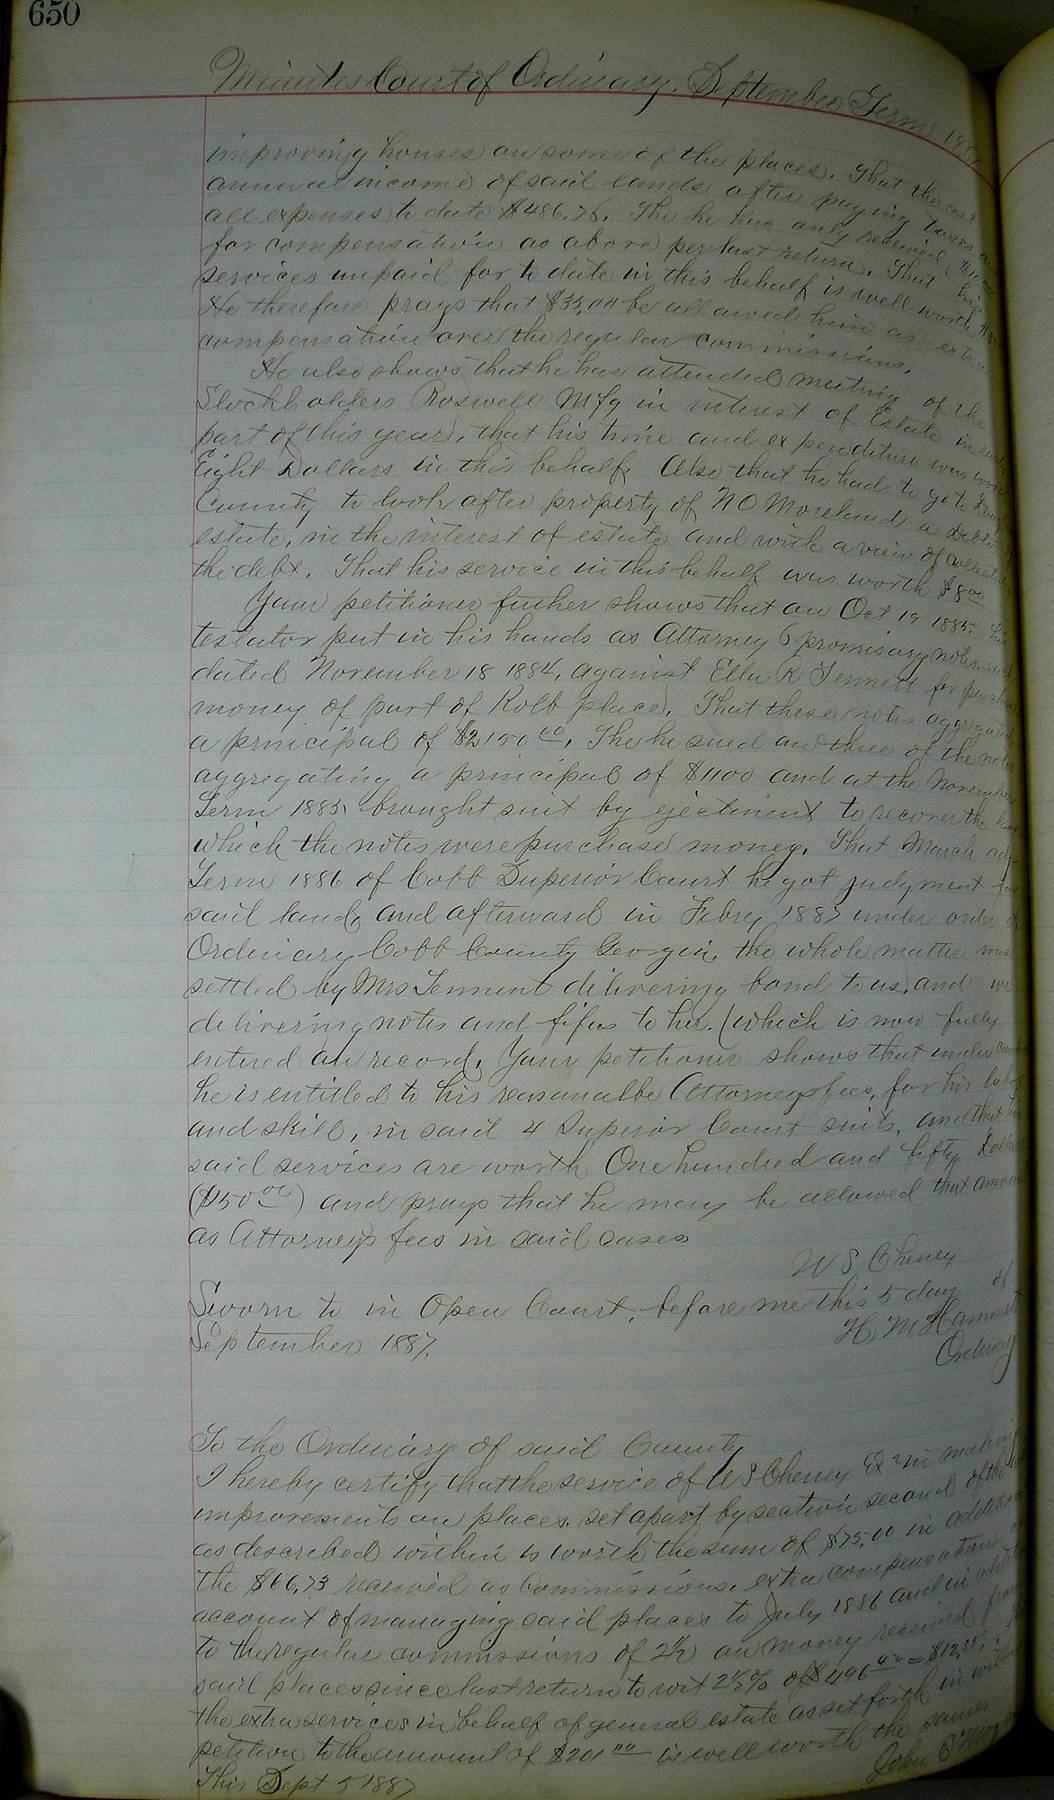 650
Minutes Court of Ordinary. September Term 188
improving houses on some of the places. That the net
annual income of said lands after paying taxes and
all expenses to date $486.76. The he has only received
for compensation as above per last return. That his
services unpaid for to date in this behalf is well worth
He therefore prays that $35,00 be allowed him as extra
compensation over the regular commissions.
He also shows that he has attended meeting of the
Stockholders Roswell Mfg in interest of Estate in early
part of this year, that his time and expenditure was worth
Eight Dollars in this behalf. Also that he had to go to
County to look after property of N O Moreland a Debtor
estate, in the interest of estate and with a view of collecting
the debt. That his service in this behalf was worth $8.00
Your petitioner futher shows that on Oct 19 1885. his
testator put in his hands as Attorney 6 promisary notes
dated November 18 1884, against Ella R Tennett for purchase
money of part of Kolb place. That these notes aggregated
a principal of $2150 00. The he sued on three of the notes
aggregating a principal of $1100 and at the November
Term 1885 brought suit by ejectment to recover the land
which the notes were purchase money. That March adj-
Term 1886 of Cobb Superior Court he got judgment for
said land, and afterward in Febry 1887 under order of
Ordinary Cobb County Georgia, the whole matter was
settled by Mrs Tennent delivering bond to us, and we
delivering notes and fifas to her. (which is now fully
entered on record. Your petitioner shows that under
he is entitled to his reasonalbe Attorneys fees, for his labor
and skill, in said 4 Superior Court suits, and that his
said services are worth One hundred and fifty Dollars
($150 00) and prays that he may be allowed that amount
as Attorneys fees in said cases
W S Cheney
Sworn to in Open Court, before me this 5 day of
September 1887.
H. M Hammett
Ordinary
To the Ordinary of said County
I hereby certify that the service of W S Cheney Exr in making
improvements on places set apart by section second of the
as described within is worth the sum of $75,00 in addition
the $66,73 received as Commissions. extra compensation on
account of managing said places to July 1886 and in addition
to the regular commissions of 2½ on money received from
said places since last return to wit 2½% of $496 = $12,35.
the extra services in behalf of general estate as set forth in within
petition to the amount of $201 00 is well worth the same
This Sept 5 1887
John